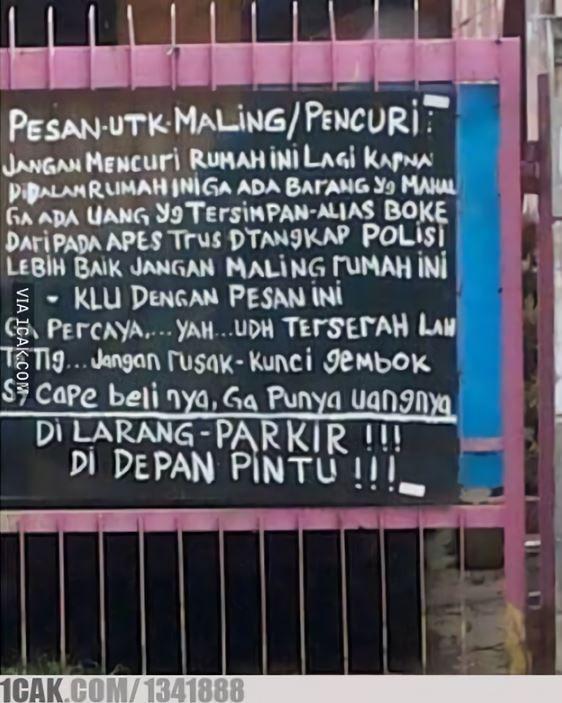 PESAN-UTK-MALING/PENCURI:
JANGAN MENCURI RUMAH INI LAGI KARNA
DIDALAM RUMAH INI GA ADA BARANG YG MAHAL
GA ADA UANG YG TERSIMPAN-ALIAS BOKE
DARIPADA APES TRUS DTANGKAP POLISI
LEBIH BAIK JANGAN MALING RUMAH INI
- KLU DENGAN PESAN INI
GA PERCAYA,... YAH...UDH TERSERAH LAH
...Jangan rusak-kunci gembok
Cape beli nya, Ga Punya uangnya
Di LARANG-PARKIR !!!
DI DEPAN PINTU !!!
VIA 1CAK.COM
1CAK.COM/1341888